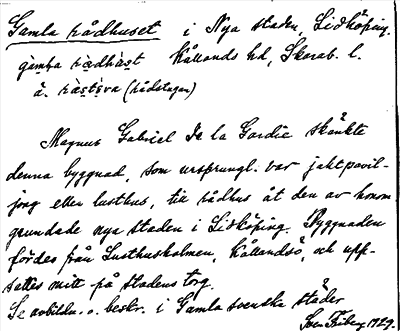 Gamla rådhuset i Nya staden, Lidköping.
gamba rådhåst Kållands hd, Skarab. l.
ä. råstsva (rådstugan)
Magnus Gabriel De la Gardie skänkte
denna byggnad, som ursprungl. var jaktpavil-
jong eller lusthus, till rådhus åt den av honom
grundade nya staden i Lidköping. Byggnaden
fördes från Lusthusholmen, Kållandsö, och upp-
sattes mitt på stadens torg.
Se avbildn. o. beskr. i Gamla svenska städer
Sven Friberg 1929.